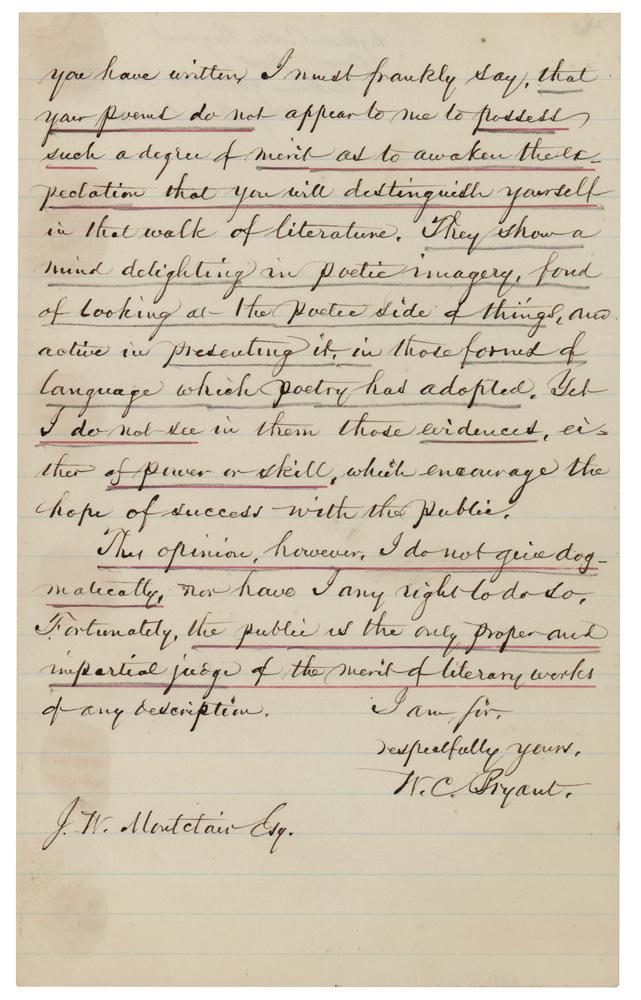 you have written, I must frankly say, that
your poems do not appear to me to possess
such a degree of merit as to awaken the ex-
pectation that you will destinguish yourself
in that walk of literature. They show a
mind delighting in poetic imagery, fond
of looking at the poetic side of things, and
active in presenting it, in those forms of
language which poetry has adopted. Yet
I do not see in them those evidences, ei-
ther of power or skill, which encourage the
hope of success with the public.
This opinion, however, I do not give dog-
matically, nor have I any right to do so.
Fortunately, the public is the only proper and
impartial judge of the merit of literary works
of any description. I am sir.
respectfully yours.
W. C. Bryant.
J. W. Montclair Esq.